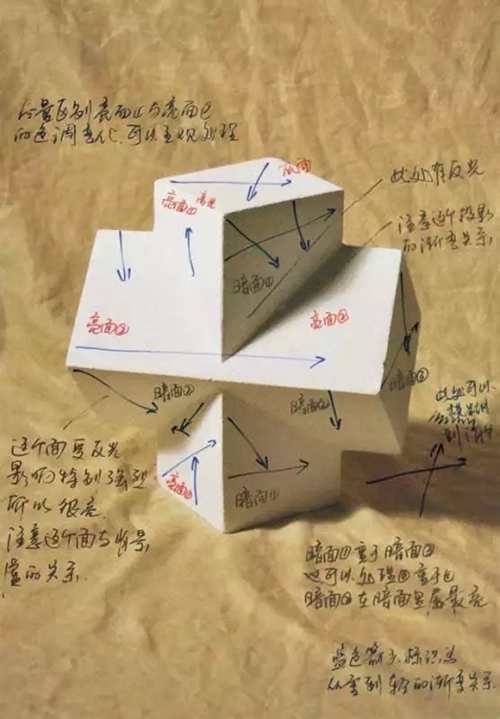 尽量区别亮面①与亮面②
的色调变化.可以主观处理
灰面
高光
亮面①
此处有反光
注意这个投影
的渐变关系.
暗面①
亮面②
亮面②
暗面②
暗面②
暗面②
此处可以
这个面受反光
影响特别强烈
所以很亮.
注意这个面与背景
的关系.
亮面①
暗面①
暗面①重于暗面②
也可以处理②重于①
暗面②在暗面里属最亮
蓝色箭头标识为
从重到轻的渐变关系.